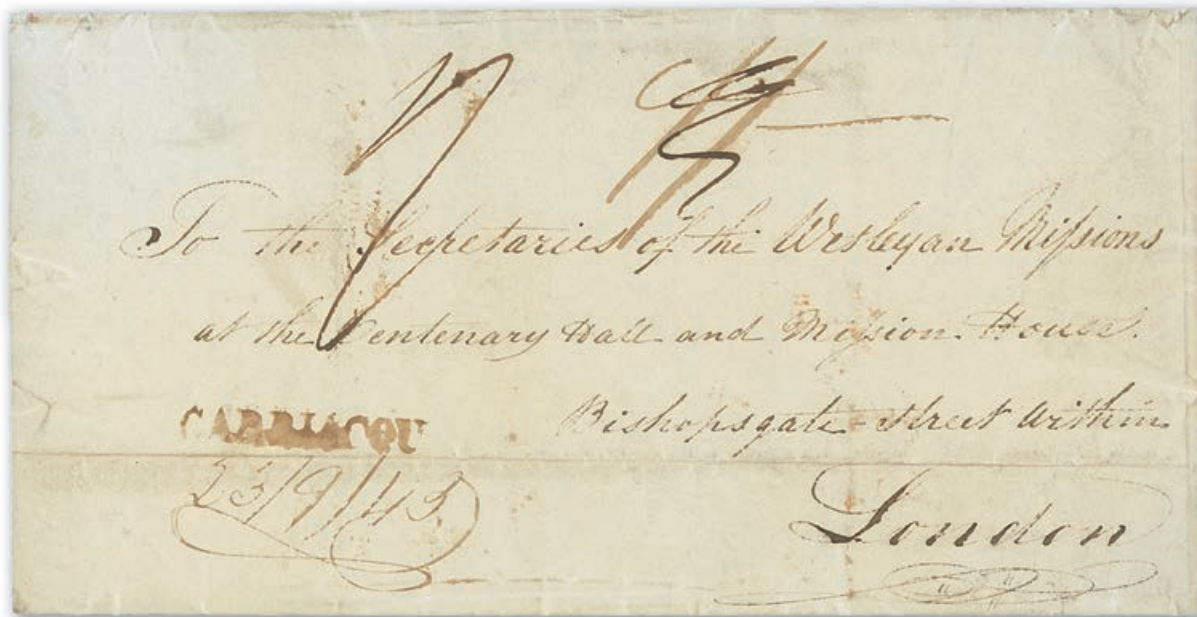 To the Secretaries of the Wesleyan Missions
at the Centenary Hall and Mission House.
Bishopsgate - street within
CARRIACOU
23/9/43.
London